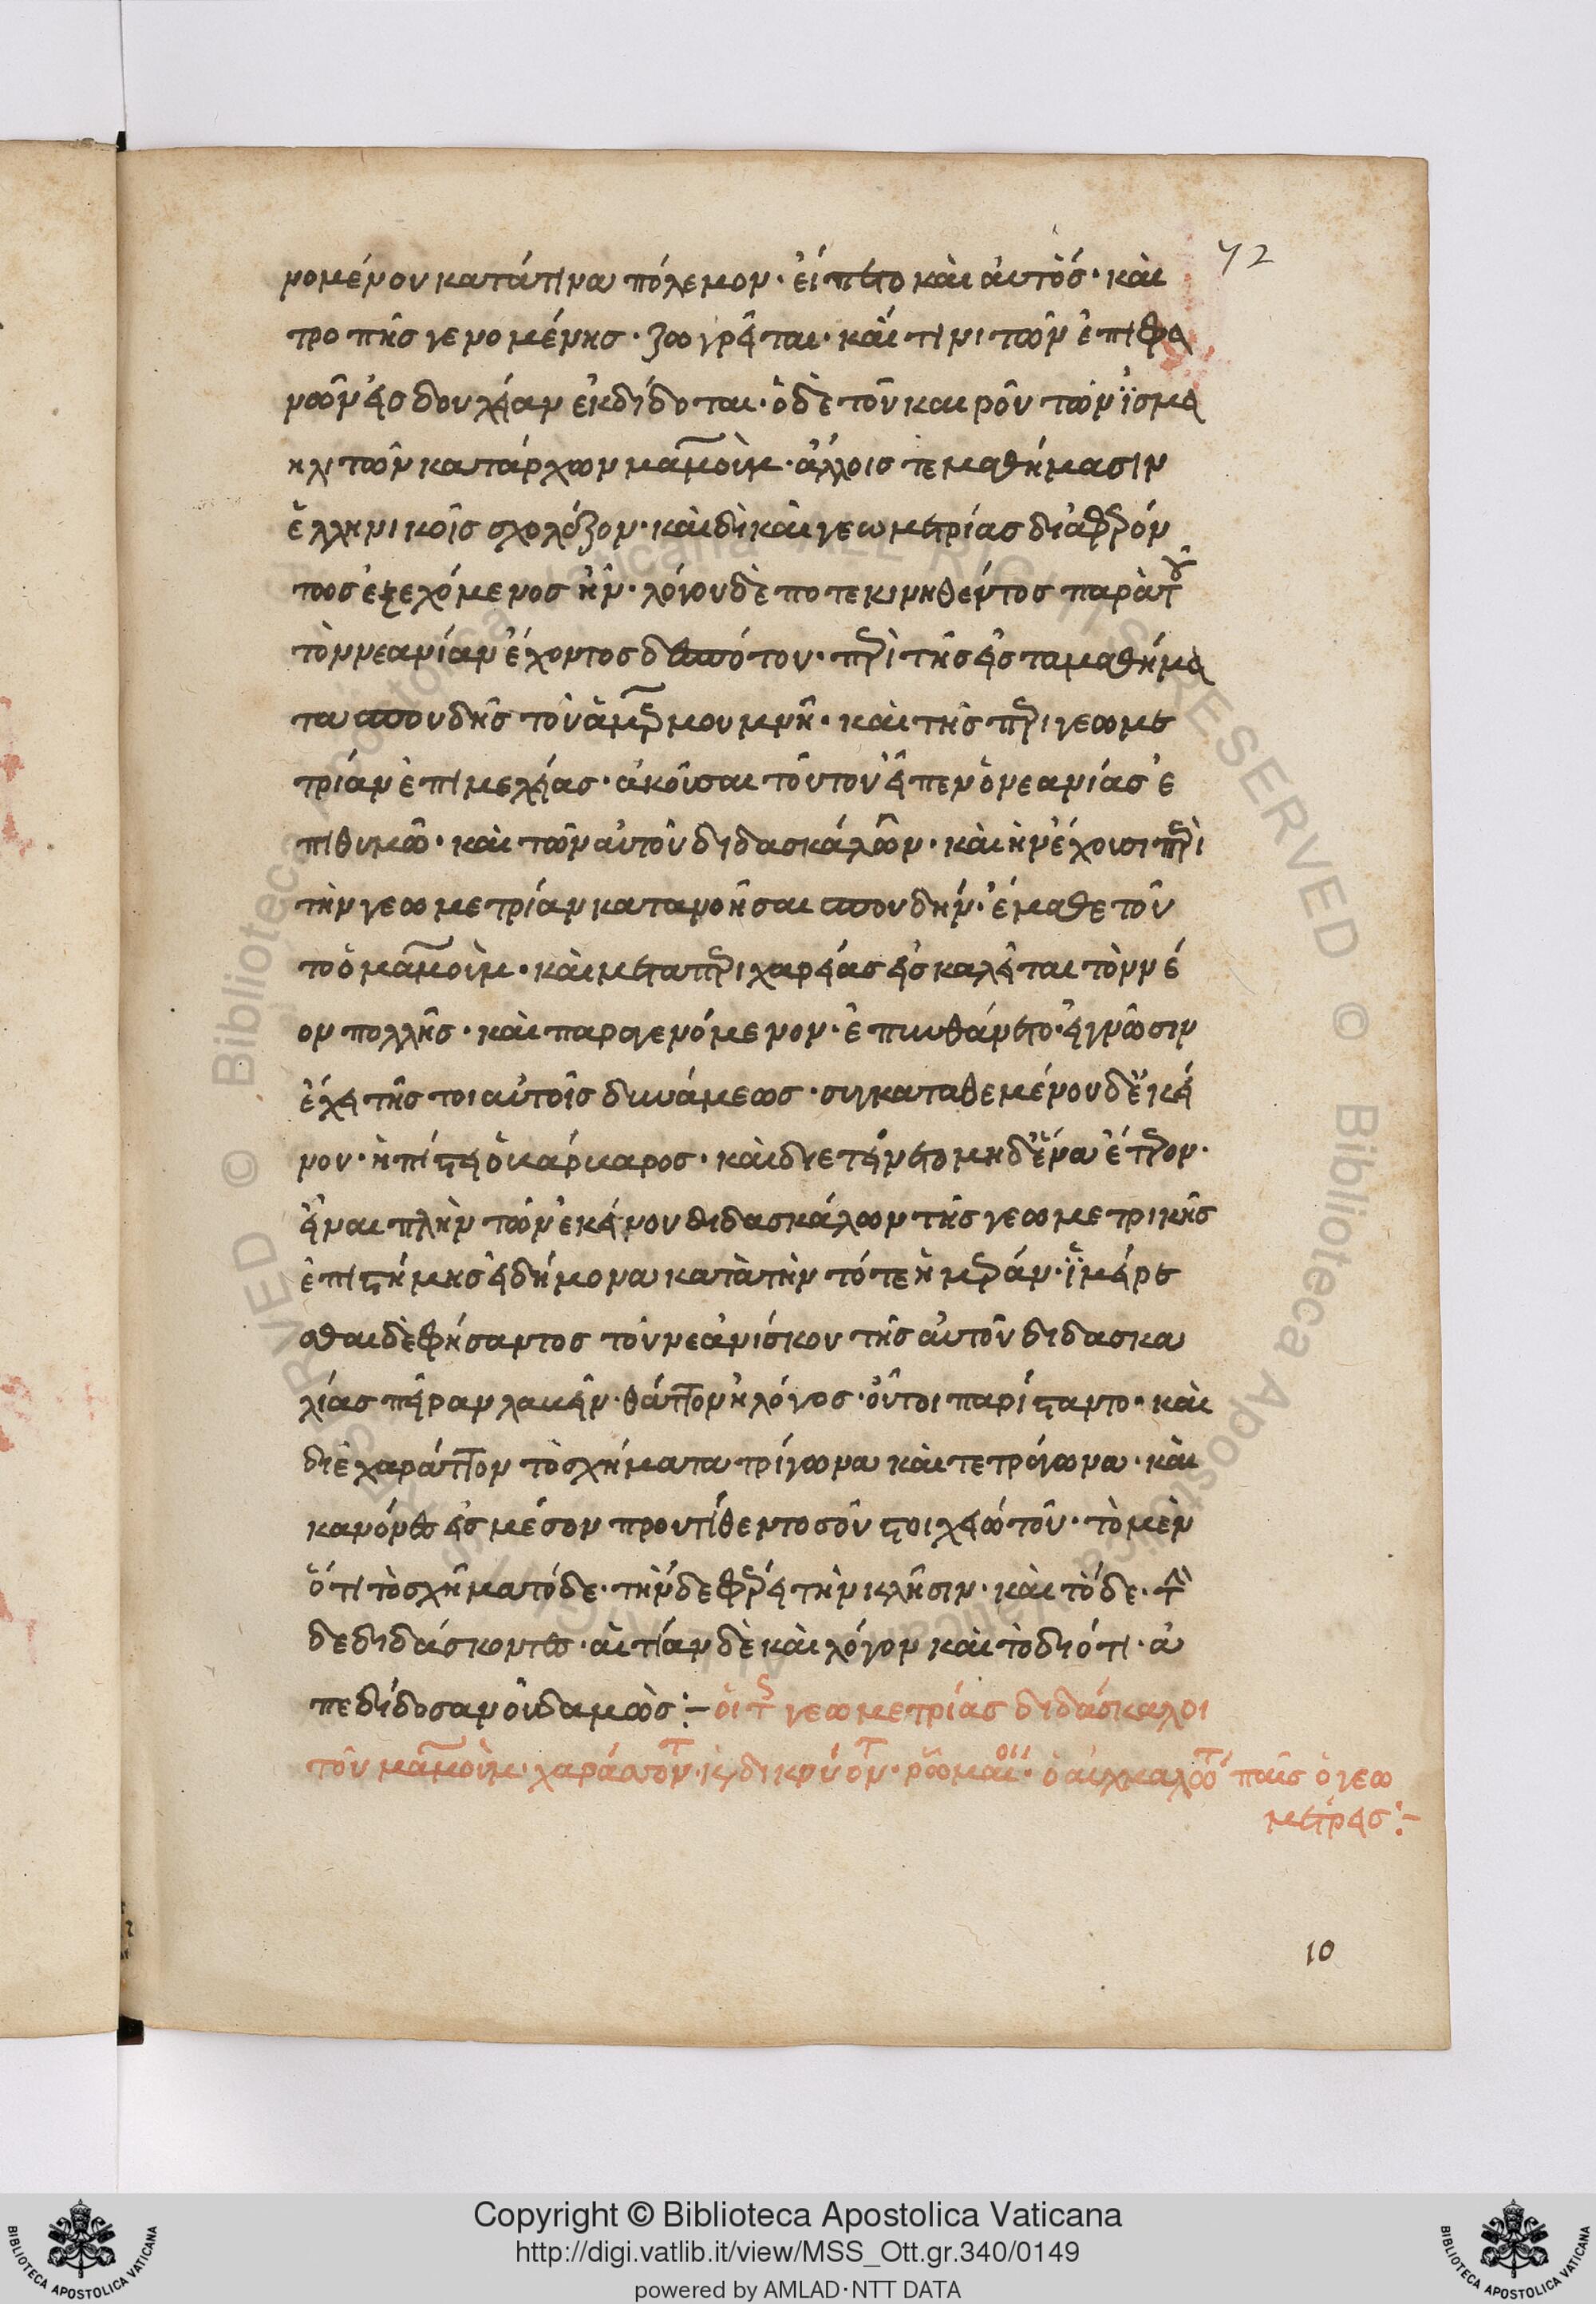 72
νομένου κατά τινα πόλεμον· εἵπετο καὶ αὐτός· καὶ
τροπῆς γενομένης· ζωγρεῖται· καί τινι τῶν ἐπιφα
νῶν εἰς δουλείαν ἐκδίδοται· ὁ δὲ τοῦ καιροῦ τῶν ἰσμα
ηλιτῶν κατάρχων μαμοὺμ· ἄλλοις τε μαθήμασιν
ἑλληνικοῖς σχολάζων· καὶ δὴ καὶ γεωμετρίας διαφερόν
τως ἐξεχόμενος ἦν· λόγου δὲ ποτε κινηθέντος παρὰ τοῦ
τὸν νεανίαν ἔχοντος δεσπότου· περὶ τῆς εἰς τὰ μαθήμα
τα σπουδῆς τοῦ ἀμερμουμνῆ· καὶ τῆς περὶ γεωμε
τρίαν ἐπιμελείας· ἀκοῦσαι τούτου εἶπεν ὁ νεανίας ἐ
πιθυμῶ· καὶ τῶν αὐτοῦ διδασκάλων· καὶ ἣν ἔχουσι περὶ
τὴν γεωμετρίαν κατανοῆσαι σπουδήν· ἔμαθε τοῦ
το ὁ μαμοὺμ· καὶ μετὰ περιχαρείας εἰσκαλεῖται τὸν νέ
ον πολλῆς· καὶ παραγενόμενον· ἐπυνθάνετο· εἰ γνῶσιν
ἔχει τῆς τοιαύτης δυνάμεως· συγκαταθεμένου δὲ ἐκεί
νου· ἠπίστει ὁ βάρβαρος· καὶ διετείνετο μηδένα ἕτερον·
εἶναι πλὴν τῶν ἐκείνου διδασκάλων τῆς γεωμετρικῆς
ἐπιστήμης εἰδήμονα κατὰ τὴν τότε ἡμέραν· ἱμείρε
σθαι δὲ φήσαντος τοῦ νεανίσκου τῆς αὐτοῦ διδασκα
λίας πεῖραν λαβεῖν· θᾶττον ἢ λόγος· οὗτοι παρίσταντο· καὶ
διεχάραττον τὸ σχήματα τρίγωνα καὶ τετράγωνα· καὶ
κανόνες εἰς μέσον προυτίθεντο σοῦ στοιχειωτοῦ· τὸ μὲν
ὅτι τὸ σχῆμα τόδε· τήνδε φέρει τὴν κλῆσιν· καὶ τόδε· τήν
δε διδάσκοντες· αἰτίαν δὲ καὶ λόγον καὶ τὸ διότι· ἀ
πεδίδοσαν οὐδαμῶς:– οἱ τῆς γεωμετρίας διδάσκαλοι
τοῦ μαμοὺμ· χαράσσοντες ῥωμαῖοι· ὁ αἰχμάλωτος παῖς ὁ γεω
μέτρης:–
10
Copyright © Biblioteca Apostolica Vaticana
http://digi.vatlib.it/view/MSS_Ott.gr.340/0149
powered by AMLAD·NTT DATA